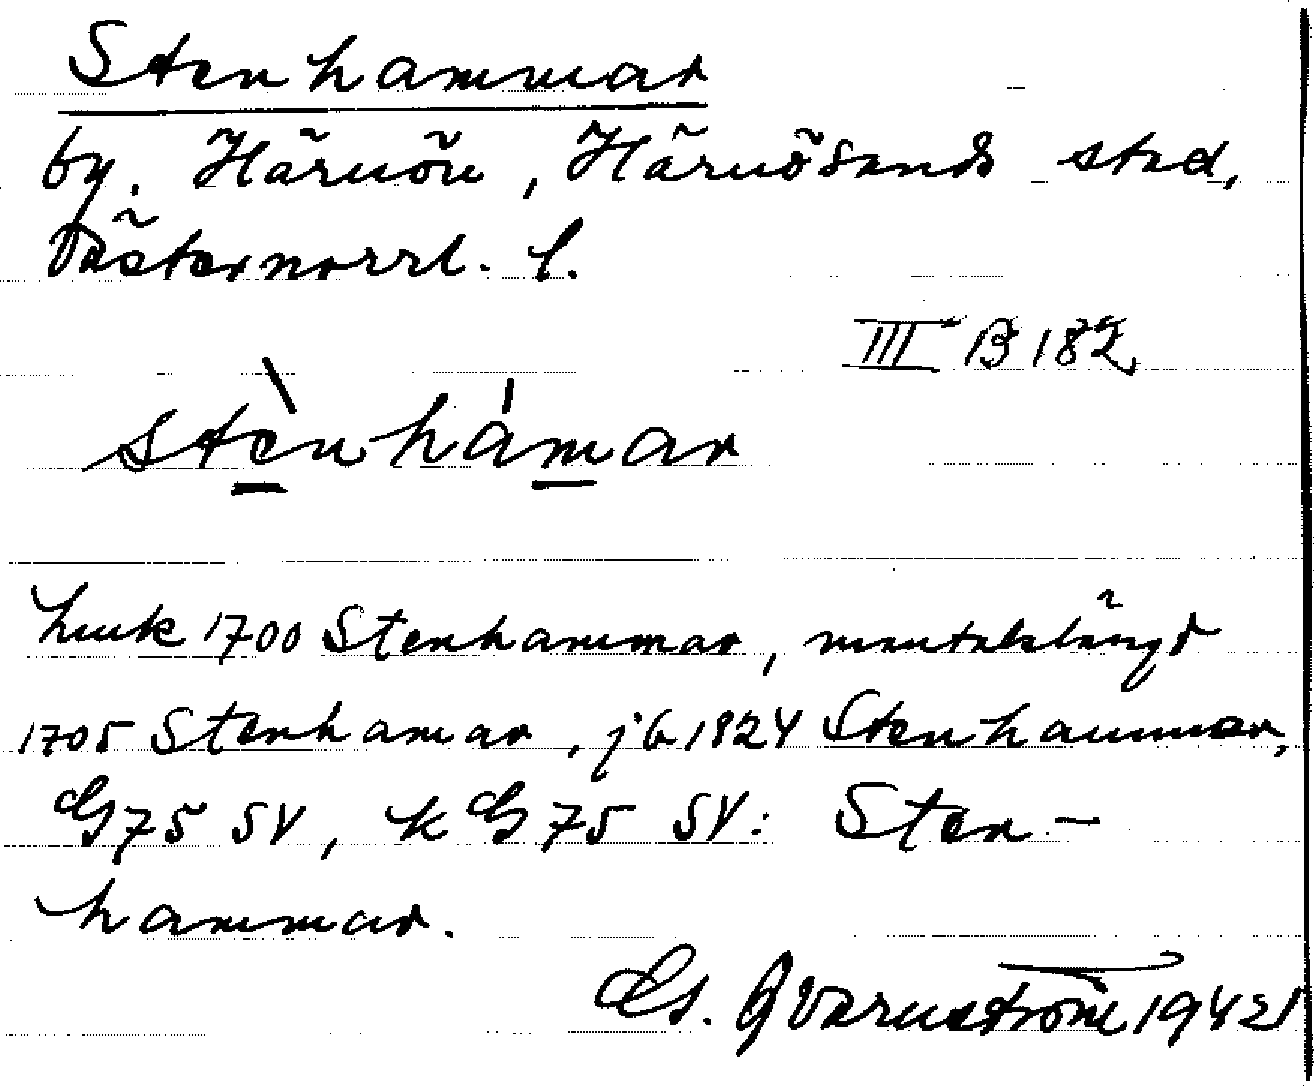 Stenhammar
by. Härnön, Härnösands stad,
Västernorrl. l.
III B 182
stènhámar
1700 Stenhammar, mantalslängd
1705 Stenhamar, jb 1824 Stenhammar,
G 75 SV, k G 75 SV: Sten-
hammar.
Gs. Qvarnström 1942